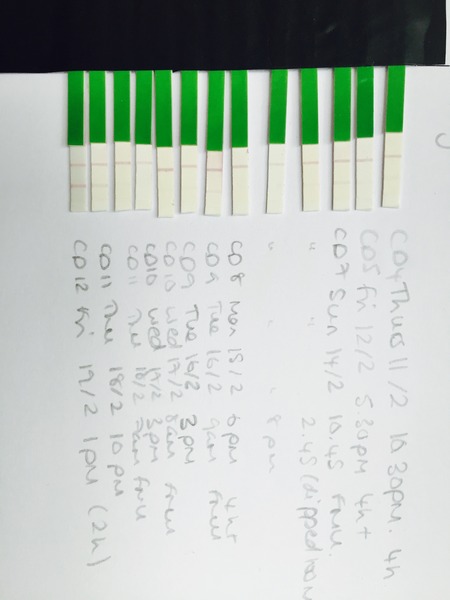 CD4 Thurs 11/2 10 30pm. 4h
CD5 Fri 12/2 5.30pm 4h+
CD7 Sun 14/2 10.45 FMU.
" " 2.45 (dipped
" " " 8pm
CD8 Mon 15/2 6pm 4hr
CD9 Tue 16/2 9am FMU
CD9 Tue 16/2 3pm
CD10 Wed 17/2 8am FMU
CD10 Wed 17/2 3pm
CD11 Thu 18/2 FMU
CD11 Thu 18/2 10pm
CD12 Fri 19/2 1pm (2h)